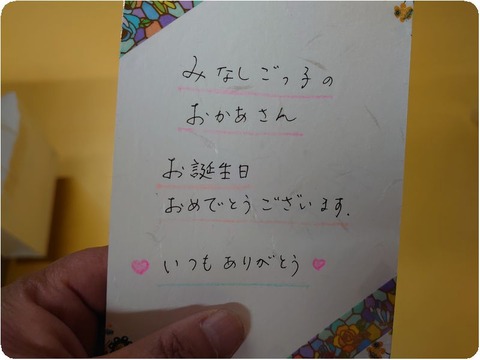 みなしごっ子の
おかあさん
お誕生日
おめでとうございます.
いつもありがとう